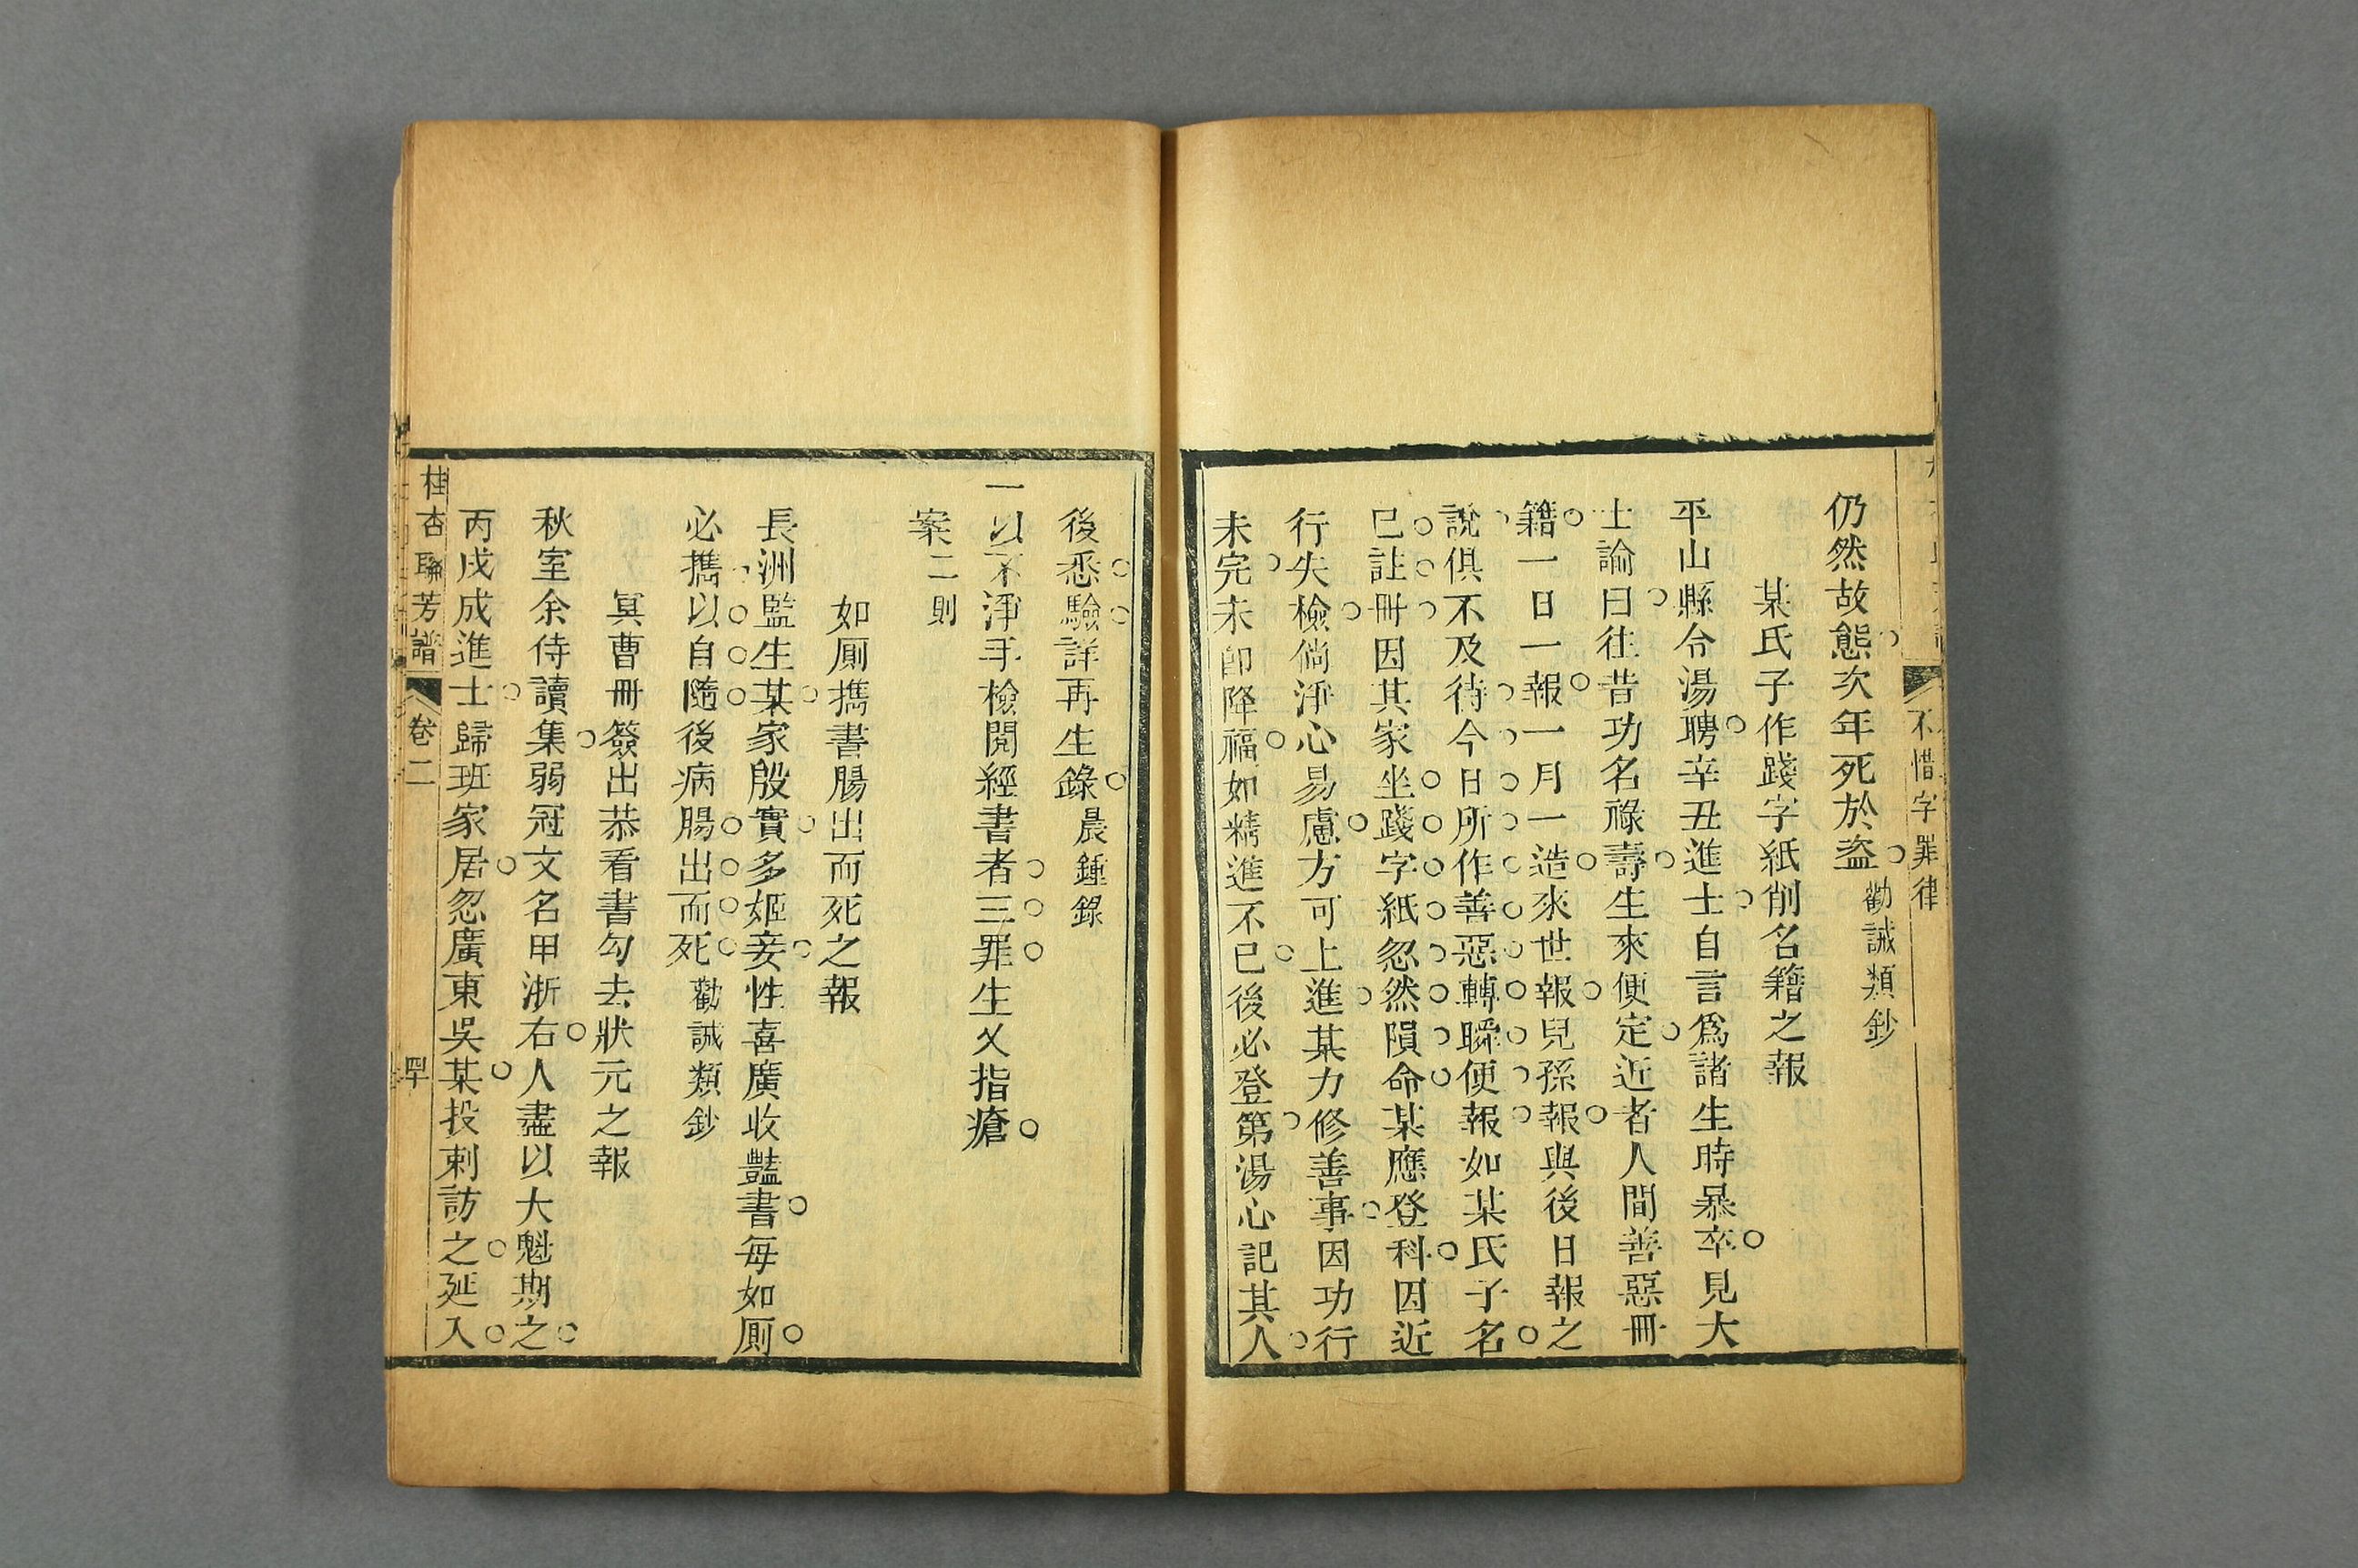 不惜字罪律
仍然故態次年死於盜勸誡類鈔
某氏子作踐字紙削名籍之報
平山縣令湯聘辛丑進士自言爲諸生時暴卒見大
士諭曰往昔功名祿壽生來便定近者人間善惡冊
籍一日一報一月一造來世報兒孫報與後日報之
說俱不及待今日所作善惡轉瞬便報如某氏子名
已註冊因其家坐踐字紙忽然隕命某應登科因近
行失檢倘淨心易慮方可上進某力修善事因功行
未完未卽降福如精進不已後必登第湯心記其人
後悉驗詳再生錄晨鍾錄
一以不淨手檢閱經書者三罪生乂指瘡
案二則
如厠攜書腸出而死之報
長洲監生某家殷實多姬妾性喜廣收豔書每如厠
必攜以自隨後病腸出而死勸誡類鈔
冥曹冊簽出恭看書勾去狀元之報
秋室余侍讀集弱冠文名甲浙右人盡以大魁期之
丙戌成進士歸班家居忽廣東吳某投刺訪之延入
桂杏聯芳譜
卷二